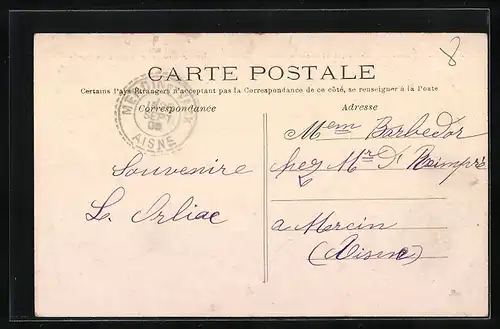 8
CARTE POSTALE
Certains Pays Étrangers n'acceptant pas la Correspondance de ce côté, se renseigner à la Poste
Correspondance
Adresse
SEPT
AISNE
Souvenire
L. Orliac
Mem Barbedor
chez Mr D'
a Mercin
(Aisne)